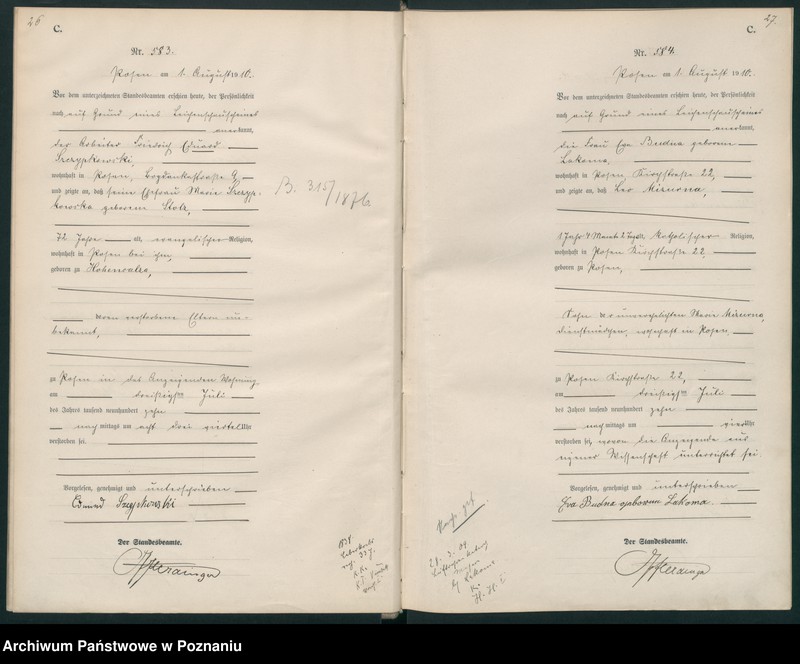 26
C.
Nr. 583.
Posen am 1. August 1910.
Vor dem unterzeichneten Standesbeamten erschien heute, der Persönlichkeit
nach auf Grund eines Leichenschauscheines
anerkannt,
der Arbeiter Friedrich Eduard
Szczypkowski,
wohnhaft in Posen, Bogdankastraße 9,
und zeigte an, daß seine Ehefrau Marie Szczyp-
kowska geborene Stolz,
72 Jahre alt, evangelischer Religion,
wohnhaft in Posen bei ihm,
geboren zu Hohensalza,
deren verstorbene Eltern un-
bekannt,
zu Posen in des Anzeigenden Wohnung
am dreißigsten Juli
des Jahres tausend neunhundert zehn
nachmittags um acht drei viertel Uhr
verstorben sei.
Vorgelesen, genehmigt und unterschrieben
Der Standesbeamte.
B. 315/1876
27.
C.
Nr. 584.
Posen am 1. August 1910.
Vor dem unterzeichneten Standesbeamten erschien heute, der Persönlichkeit
nach auf Grund eines Leichenschauscheines
anerkannt,
die Frau Eva Budna geborene
Lakoma,
wohnhaft in Posen, Kirchstraße 22,
und zeigte an, daß Leo
1 Jahr 4 Monate alt, katholischer Religion,
wohnhaft in Posen Kirchstraße 22,
geboren zu Posen,
Sohn der unverehelichten Marie
Dienstmädchen, wohnhaft in Posen,
zu Posen Kirchstraße 22,
am dreißigsten Juli
des Jahres tausend neunhundert zehn
nachmittags um vier Uhr
verstorben sei, wovon die Anzeigende aus
eigener Wissenschaft unterrichtet sei.
Vorgelesen, genehmigt und unterschrieben
Eva Budna geborene Lakoma.
Der Standesbeamte.
Archiwum Państwowe w Poznaniu